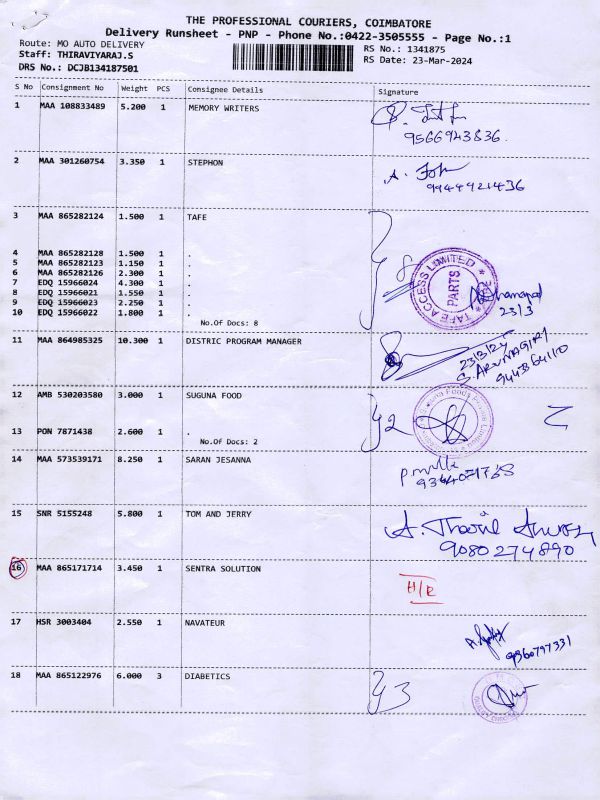 THE PROFESSIONAL COURIERS, COIMBATORE
Delivery Runsheet - PNP - Phone No.:0422-3505555 - Page No.:1
Route: MO AUTO DELIVERY RS No.: 1341875
Staff: THIRAVIYARAJ.S RS Date: 23-Mar-2024
DRS No.: DCJB134187501
S No Consignment No Weight PCS Consignee Details Signature
1 MAA 108833489 5.200 1 MEMORY WRITERS
9566943836
2 MAA 301260754 3.350 1 STEPHON
9944921436
3 MAA 865282124 1.500 1 TAFE
4 MAA 865282128 1.500 1 .
5 MAA 865282123 1.150 1 .
6 MAA 865282126 2.300 1 .
7 EDQ 15966024 4.300 1 .
8 EDQ 15966021 1.550 1 .
9 EDQ 15966023 2.250 1 .
10 EDQ 15966022 1.800 1 .
No.Of Docs: 8
8
TAFE ACCESS LIMITED
PARTS
23/3
11 MAA 864985325 10.300 1 DISTRIC PROGRAM MANAGER
23/3/24
S. ARUNAGIRI
944364110
12 AMB 530203580 3.000 1 SUGUNA FOOD
13 PON 7871438 2.600 1 .
No.Of Docs: 2
2
14 MAA 573539171 8.250 1 SARAN JESANNA
9364071768
15 SNR 5155248 5.800 1 TOM AND JERRY
9080274890
16 MAA 865171714 3.450 1 SENTRA SOLUTION
H/R
17 HSR 3003404 2.550 1 NAVATEUR
9360797331
18 MAA 865122976 6.000 3 DIABETICS
3